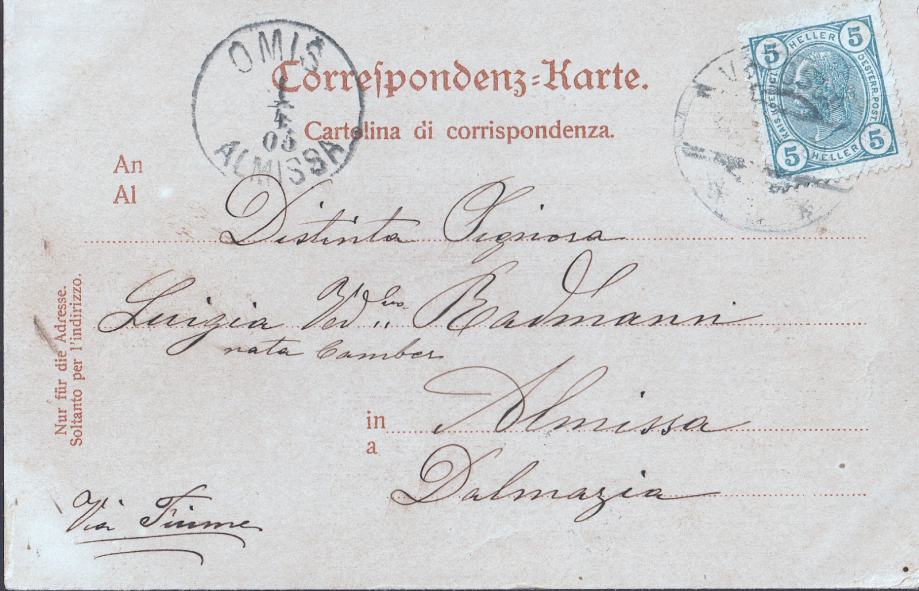 OMIŠ
4
05
ALMISSA
Correspondenz-Karte.
Cartolina di corrispondenza.
5 HELLER 5
KAIS. KOENIGL. OESTERR. POST
5 HELLER 5
An
Al
Distinta Signora
Luigia Ved.
Radmann
nata Camber
in
a
Almissa
Dalmazia
Nur für die Adresse.
Soltanto per l'indirizzo.
Via Fiume